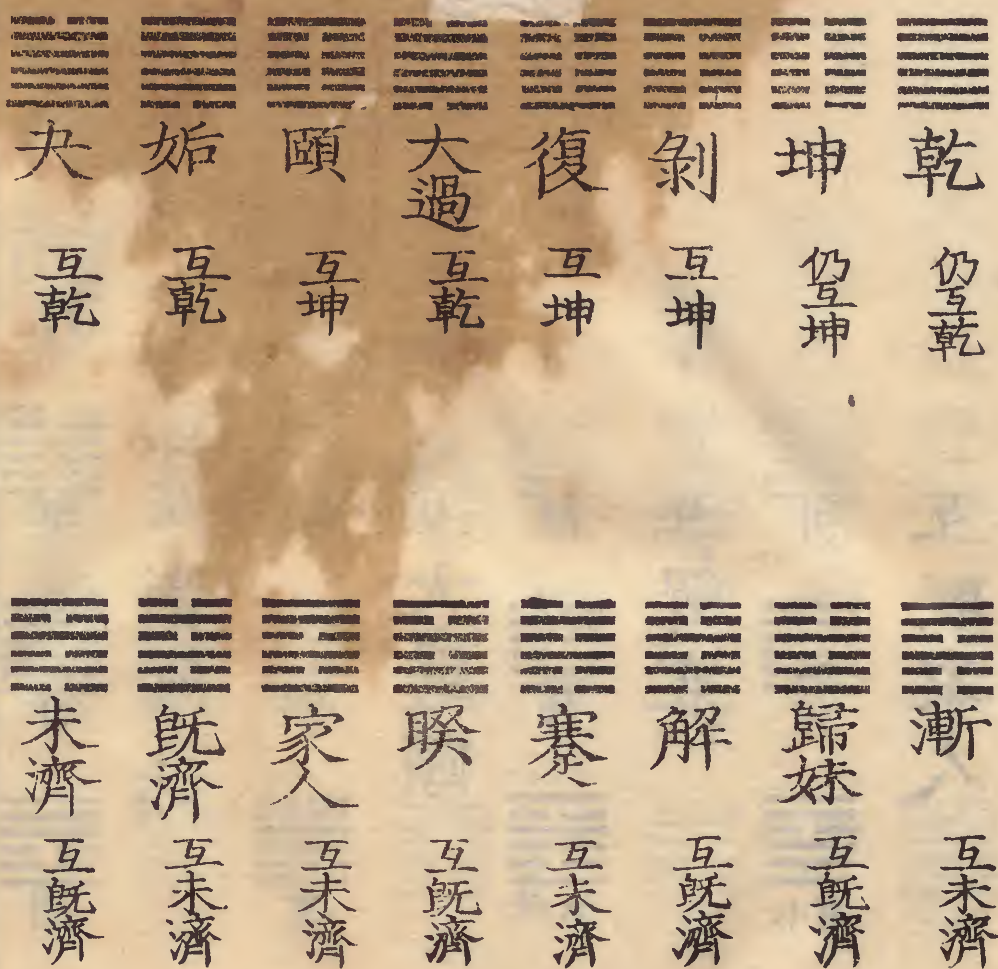 乾
仍互乾
坤
仍互坤
剝
互坤
復
互坤
大過
互乾
頤
互坤
姤
互乾
夬
互乾
漸
互未濟
歸妹
互旣濟
解
互旣濟
蹇
互未濟
睽
互旣濟
家人
互未濟
旣濟
互未濟
未濟
互旣濟